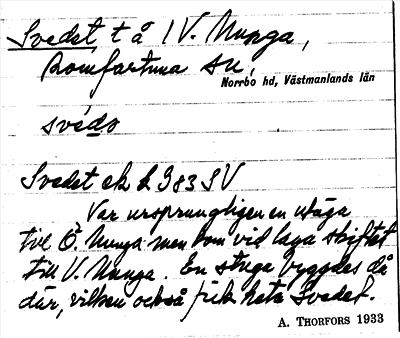 Svedet, t å 1 V. Munga,
Romfartuna sn,
Norrbo hd, Västmanlands län
svédo
Svedet ek L 983 SV
Var ursprungligen en utäga
till Ö. Munga men kom vid laga skiftet
till V. Munga. En stuga byggdes då
där, vilken också fick heta Svedet.
A. THORFORS 1933